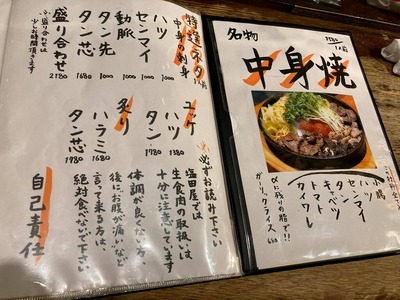 名物
中身焼
1人前
小腸
ハツ
センマイ
タン
キャベツ
トマト
カイワレ
〆に残りの脂で!!
ガーリックライス
特選ネタ
中身の刺身
1人前
ハツ
センマイ 1000
動脈 1000
タン先 1000
タン芯 1680
盛り合わせ 2180
※盛り合わせは
少しお時間頂きます
ユッケ
ハツ 1380
タン 1780
炙り
ハラミ 1680
タン芯 1980
※必ずお読み下さい
塩田屋では
生食肉の取扱いは、
十分に注意してます
体調が良くない方、
後に、お腹が痛いなど
言って来る方は、
絶対食べないで下さい。
自己責任